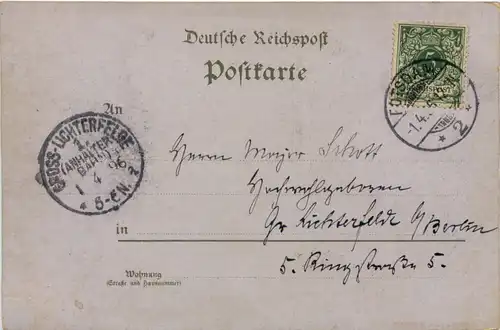 Deutsche Reichspost
Postkarte
An
GROSS-LICHTERFELDE
1
(ANHALTER
BAHN)
1 4 96
* 5-6N. *
POTSDAM
1.4.
* 2 *
Herrn Major Schott
Hochwohlgeboren
in Gr Lichterfelde b/Berlin
5. Ringstraße 5.
Wohnung
(Straße und Hausnummer)